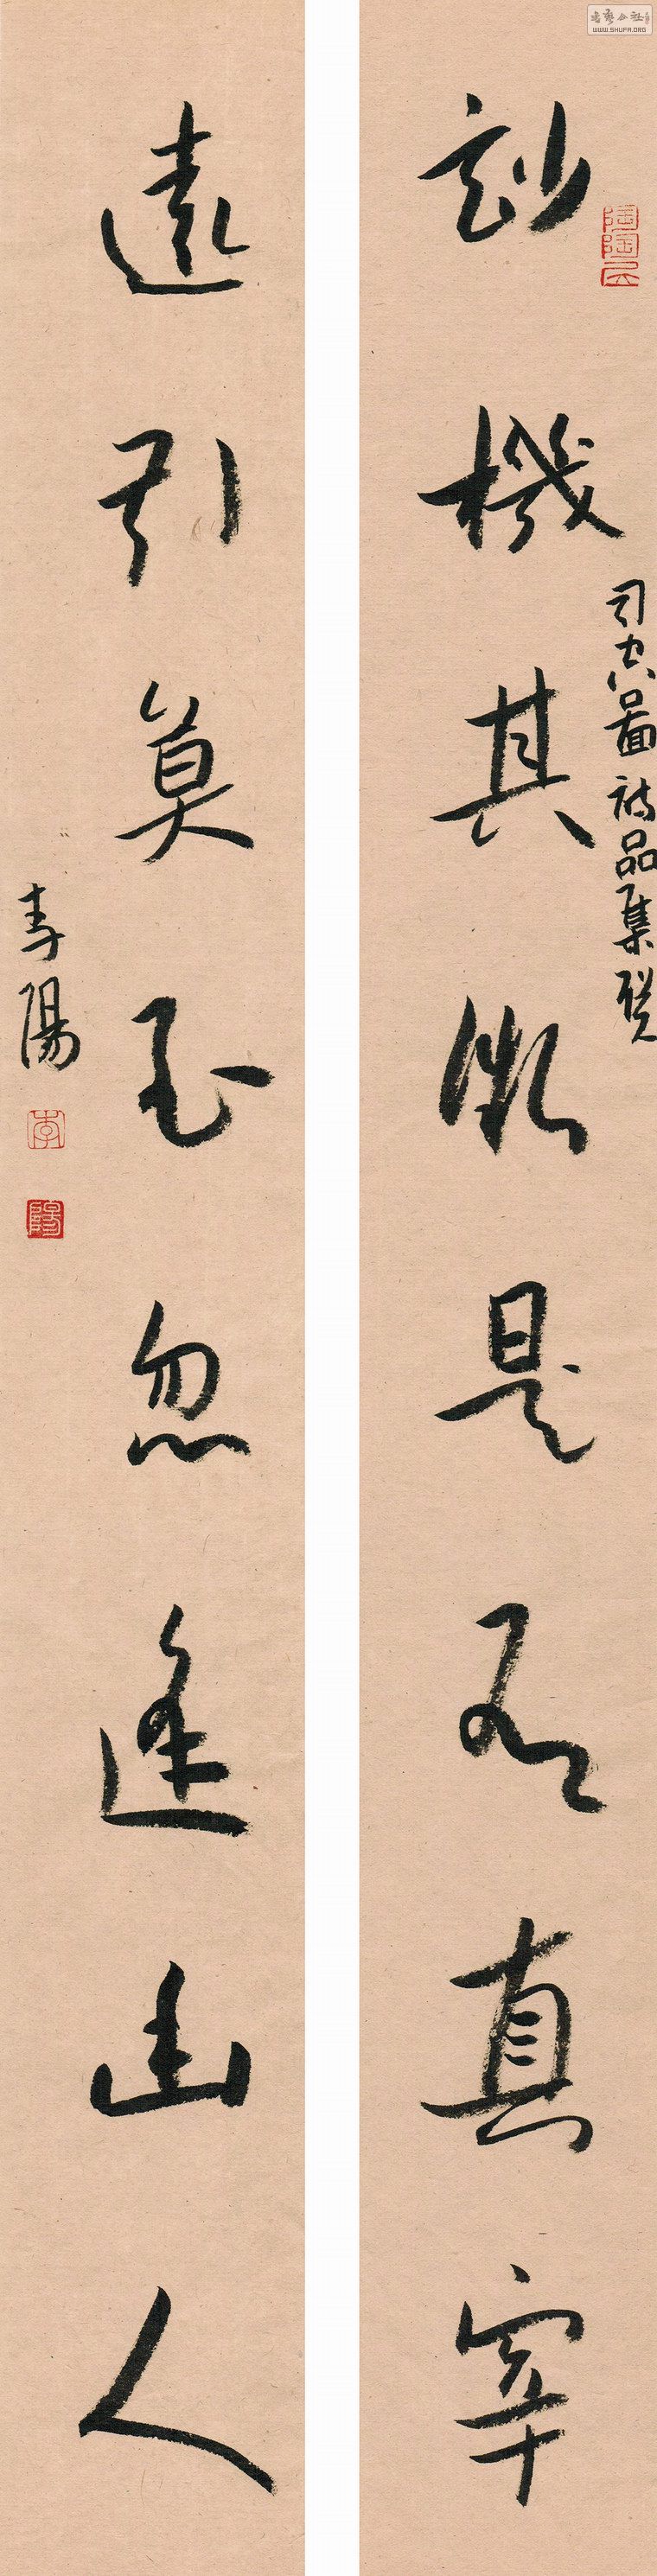 司空圖詩品集聯
妙機其微是有真宰
遠引莫至忽逢幽人
李陽
李
陽
WWW.SHUFA.ORG